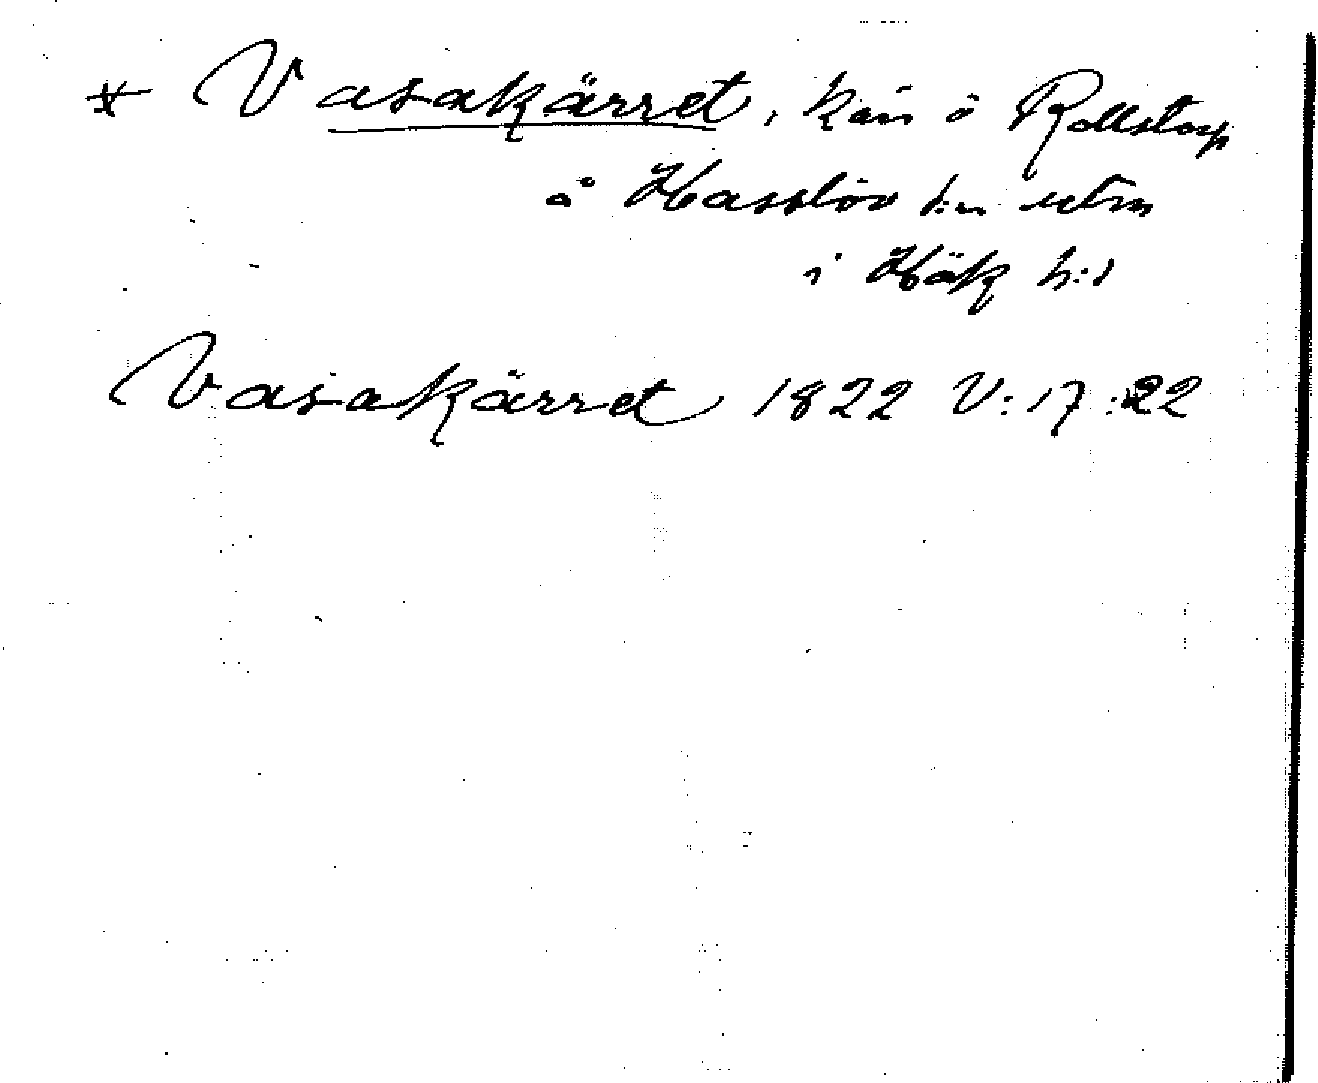 * Vasakärret, kärr å Rollstorp
å Hasslöv s:n utm
i Hök h:d
Vasakärret 1822 V:17:22